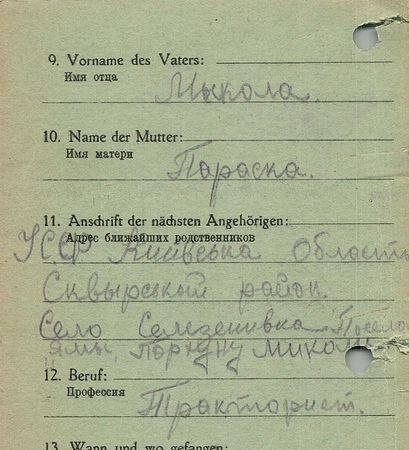 9. Vorname des Vaters:
Имя отца
Мыкола.
10. Name der Mutter:
Имя матери
Параска.
11. Anschrift der nächsten Angehörigen:
Адрес ближайших родственников
УССР Київська Область
Сквырський район.
Село Селезенивка
12. Beruf:
Профессия
Тракторист.
13. Wann und wo gefangen: